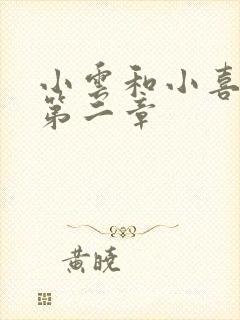 小雪和小喜
第二章
黄晓